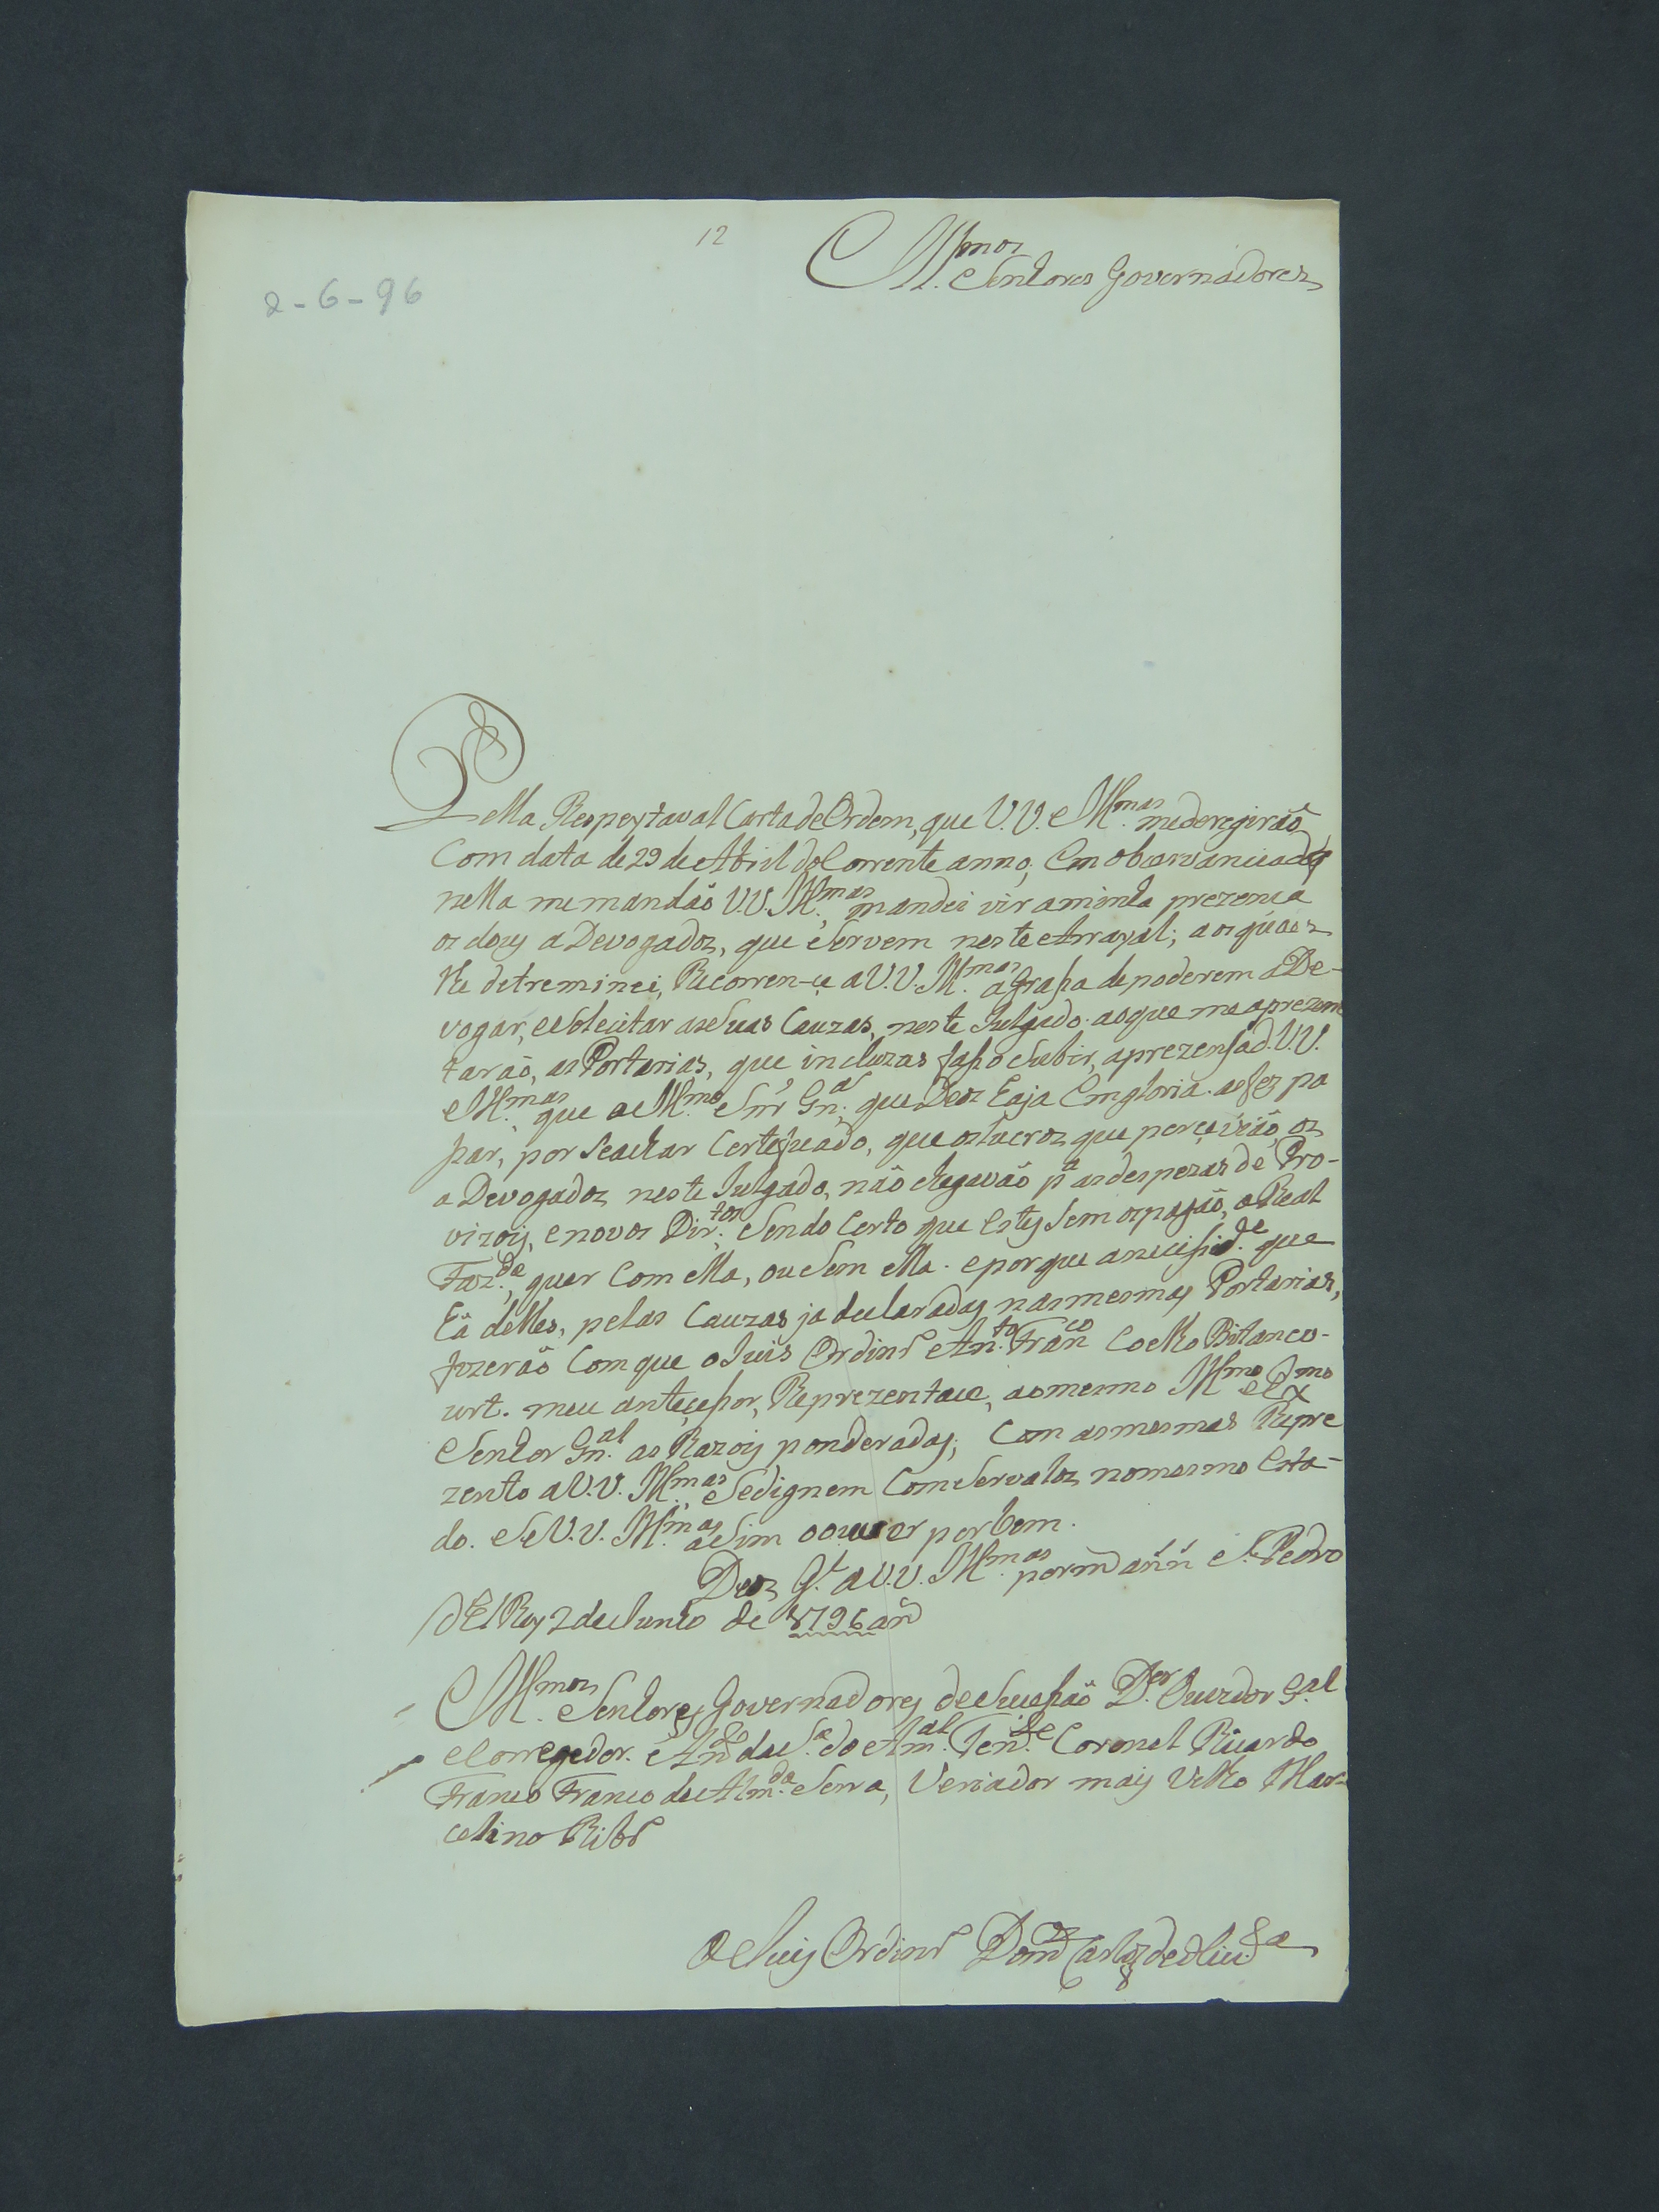 12
Illmos
Senhores Governadores
2-6-96
Pella Respeytaval Carta de Ordem, que V.V. Illmas. me deregirão
Com data de 29 de Abril do Corrente anno, Em observancia do q
nella me mandão V.V. Illmas., mandei vir a minha prezenca
os doys a Devogados, que Servem neste Arrayal; aos quaes
lhe detreminei, Recorren-çe a V.V. Illmas. a Grassa de poderem a De-
vogar, e Solecitar as Suas Cauzas, neste Julgado. ao que me aprezen
tarão, as Portarias, que incluzas fasso Subir, a prezensa d. V.V.
Illmas., que o Illmo Snr' Gnal. que Deos haja Em gloria. as fez pa
ssar, por Se achar Certeficado, que os Lucros que perçevião, os
a Devogados neste Julgado, não chegavão pa as despezas de Pro-
vizoiz, e novos Dirtos. Sendo Certo que Estes Sem os pagão, a Real
Fazda., quer Com ella, ou Sem ella. e porque a necesside. que
há delles, pelas Cauzas ja declaradas nas mesmas Portarias,
fizerão Com que o Juis Ordinr Anto. Franco Coelho Bitanco-
urt. meu anteçessor, Reprezentace, ao mesmo Illmo e Exmo
Senhor Gnal. as Razoiz ponderadas; Com as mesmas Repre
zento a V.V. Illmas., Se dignem Comservalos no mesmo Esta-
do. Se V.V. Illmas. aSim o ouver por bem.
Deos Ge. a V.V. Illmas. por m annn S. Pedro
d'El Rey 2 de Junho de 1796 an
Illmos. Senhores Governadores de Sucessão Dor. Ouvidor Gal
e Corregedor. Anto da Sa. do Aml. Tene. Coronel Ricardo
Franco Franco de Almda. Serra, Veriador mais Velho Mar-
celino Ribr
O Juis Ordinr Domos Carlos de Oliura